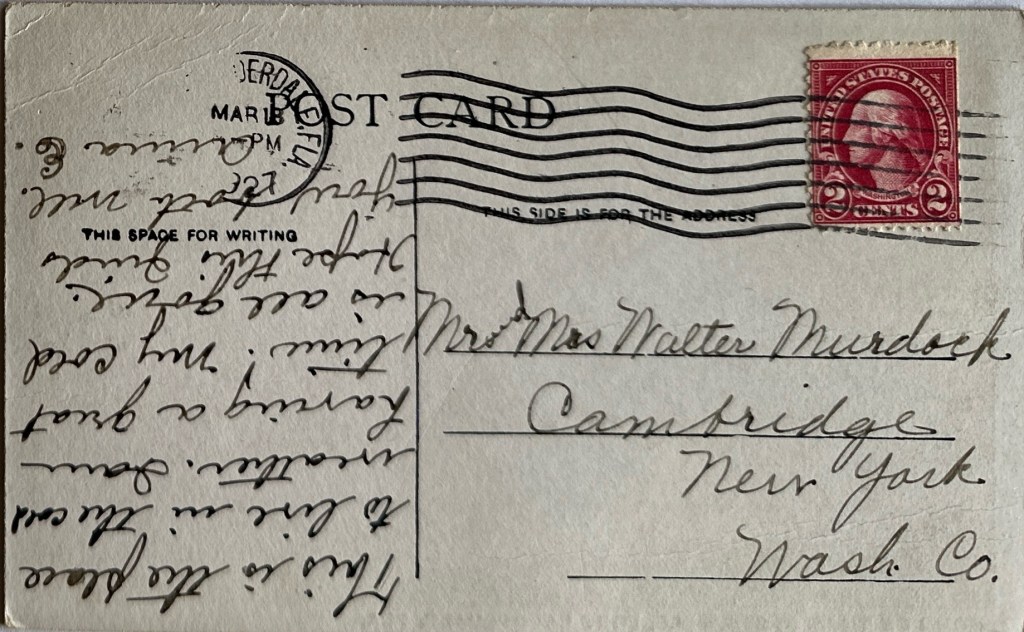 DERDALE, FLA.
MAR 18
PM
POST CARD
UNITED STATES POSTAGE
WASHINGTON
2 CENTS 2
THIS SPACE FOR WRITING
THIS SIDE IS FOR THE ADDRESS
Mr and Mrs Walter Murdock
Cambridge
New York
Wash. Co.
This is the place
to live in the cold
weather. Am
having a great
time! My cold
is all gone.
Hope this finds
you both well.
Anna E.